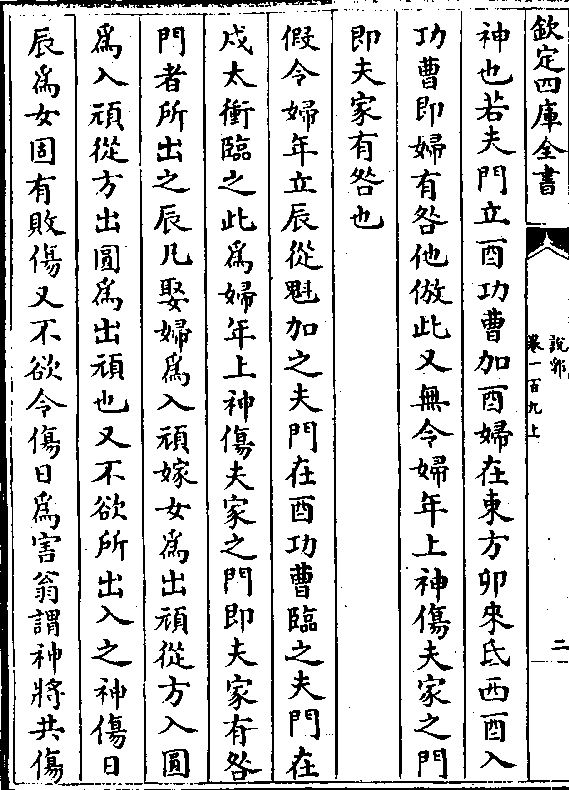 欽定四庫全書
說郛
卷一百九上
二
神也若夫門立酉功曹加酉婦在東方卯來氐西酉入
功曹即婦有咎他倣此又無令婦年上神傷夫家之門
即夫家有咎也
假令婦年立辰從魁加之夫門在酉功曹臨之夫門在
戌太衝臨之此為婦年上神傷夫家之門即夫家有咎
門者所出之辰凡娶婦為入頑嫁女為出頑從方入圓
為入頑從方出圓為出頑也又不欲所出入之神傷日
辰為女固有敗傷又不欲令傷日為害翁謂神將共傷